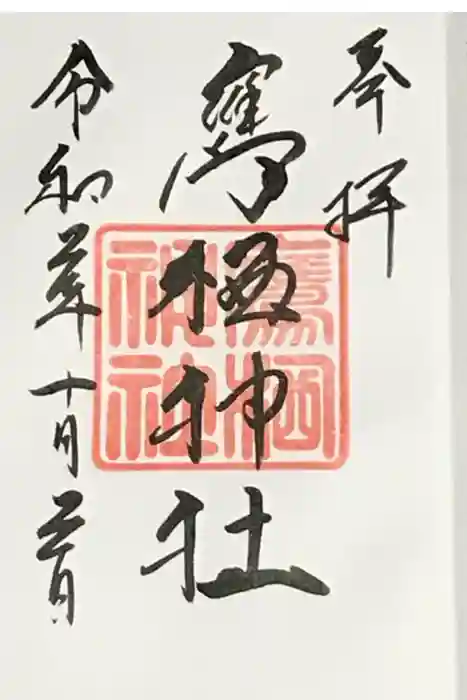 奉拝
鷹栖神社
鷹栖
神社
令和年十月日